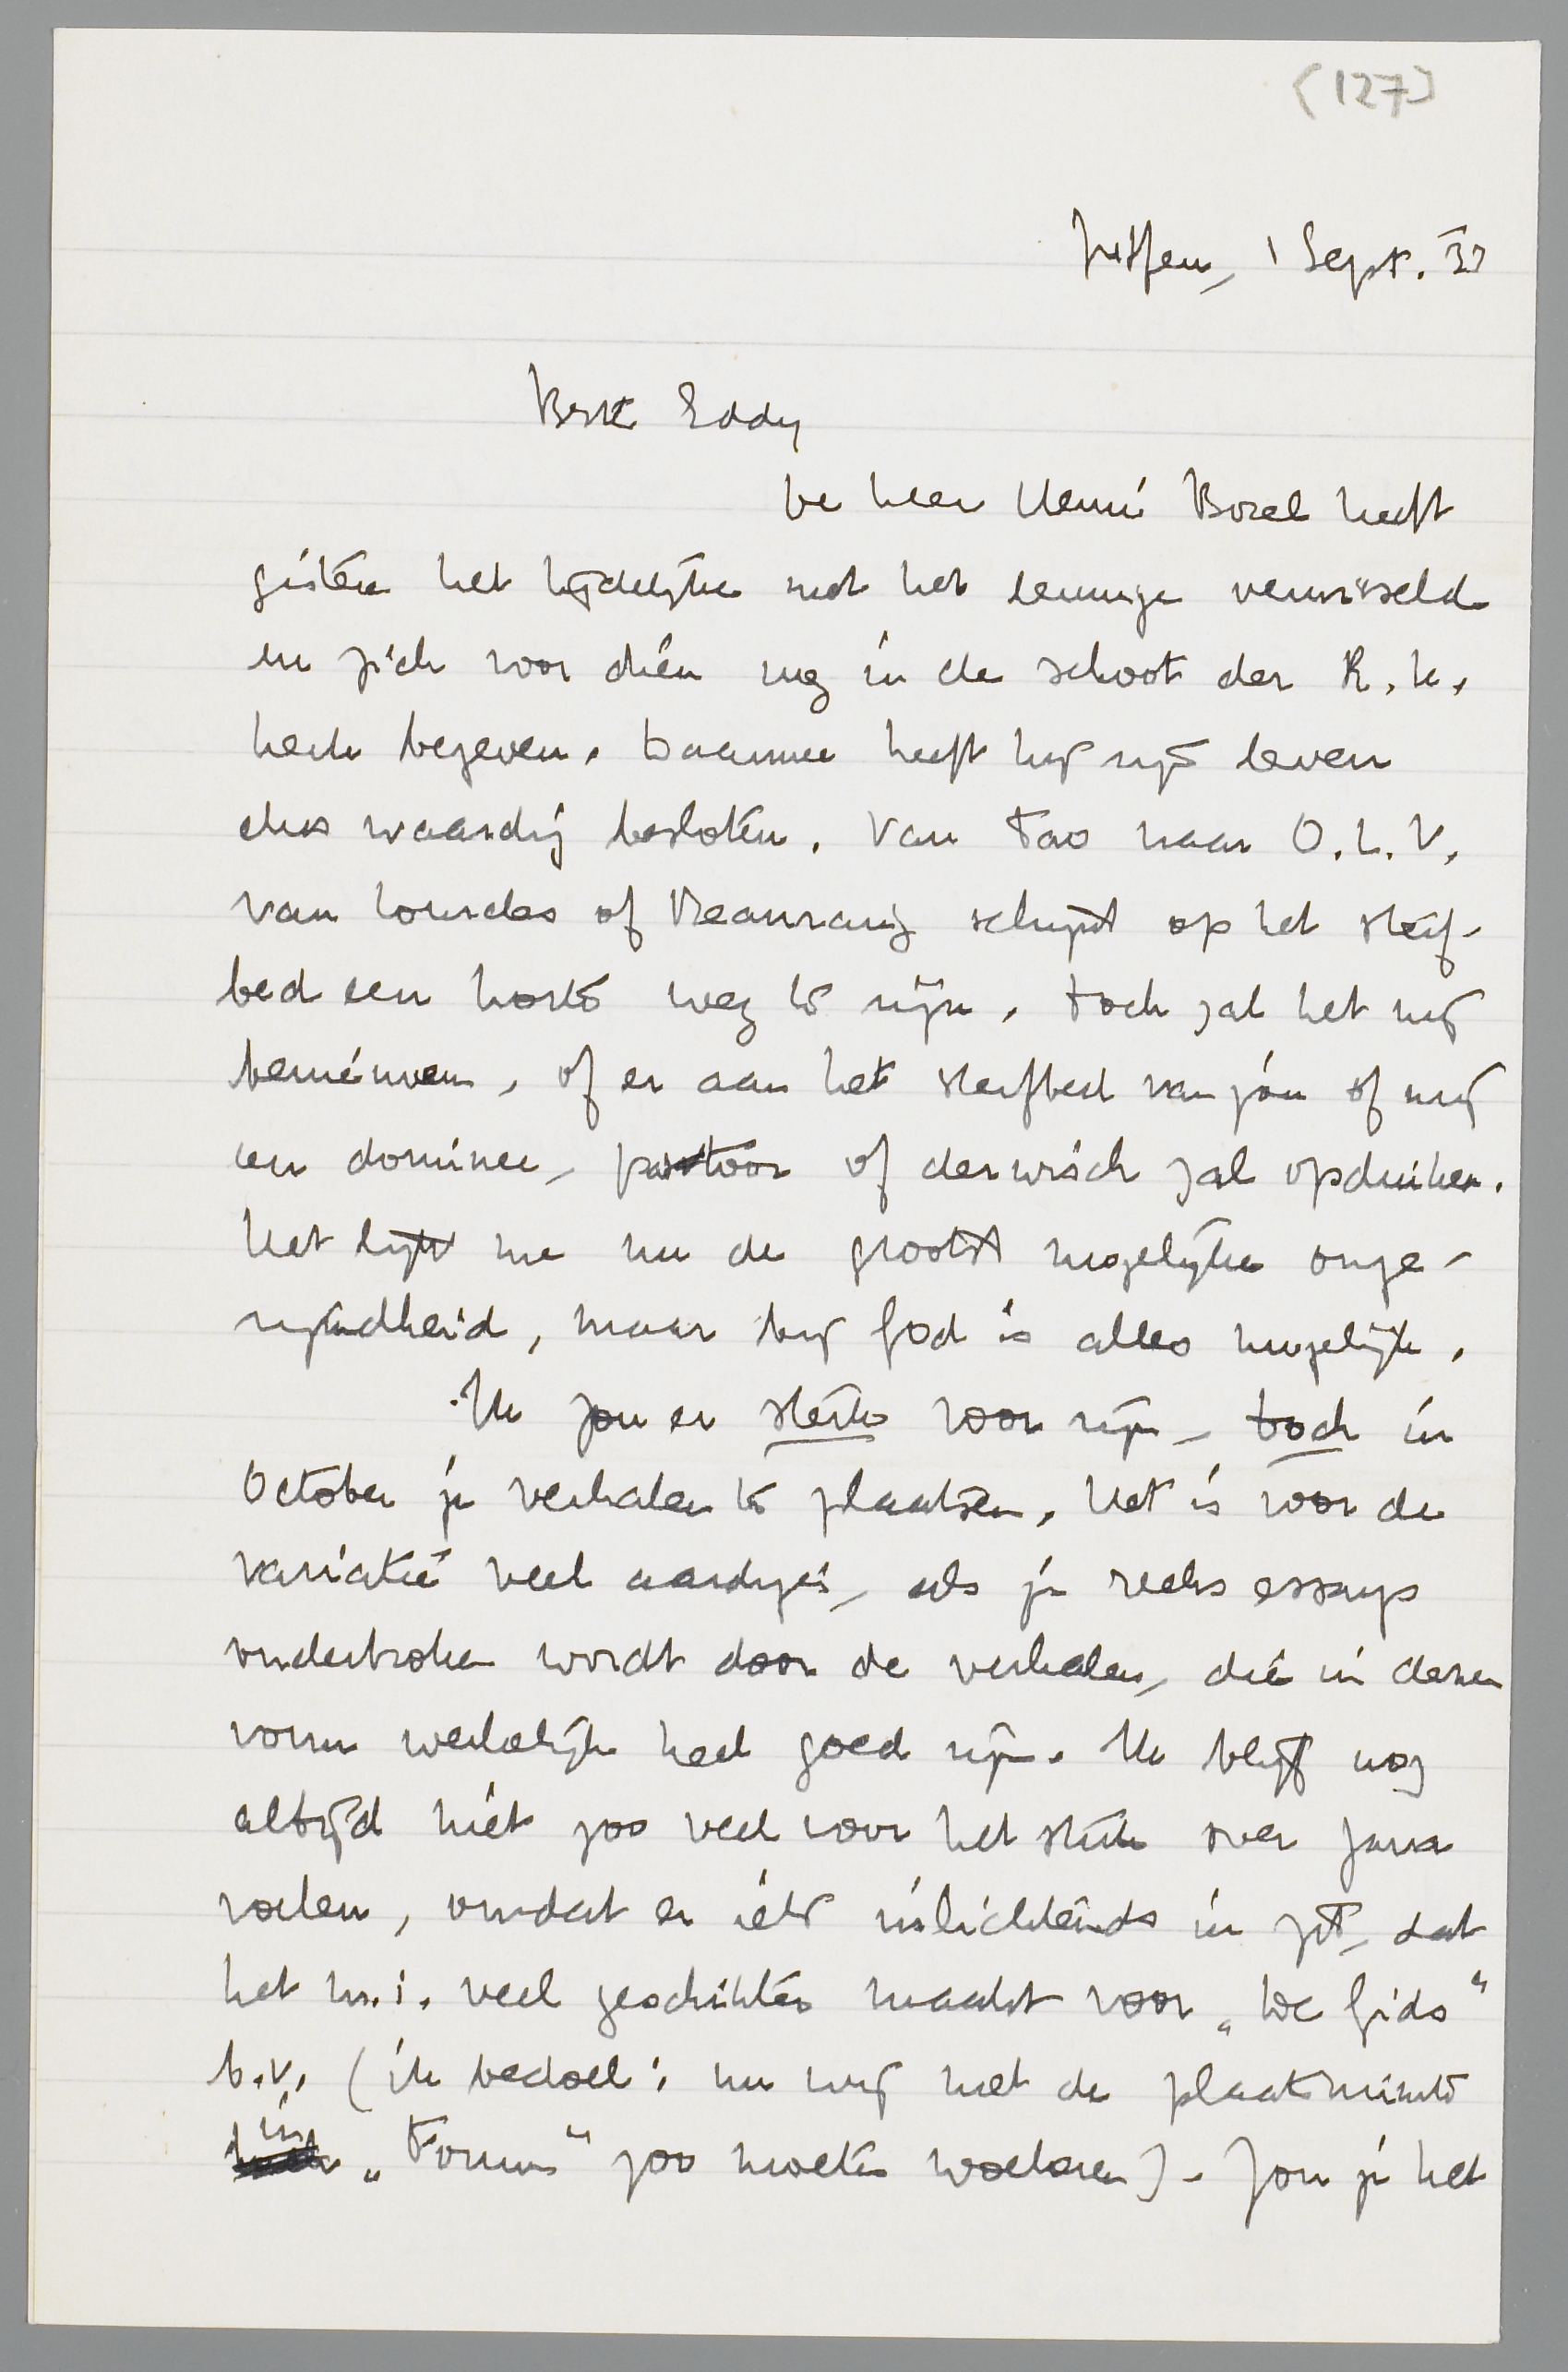 (127)
Zutfen, 1 Sept. 33
Beste Eddy
De heer Henri Borel heeft
gisteren het tijdelijke met het eeuwige verwisseld
en zich voor dien nog in de schoot der R.K.
kerk begeven. Daarmee heeft hij zijn leven
dus waardig besloten. Van Tao naar O.L.V.
van Lourdes of Beauraing schijnt op het sterf-
bed een korte weg te zijn. Toch zal het mij
benieuwen, of er aan het sterfbed van jóu of mij
een dominee, pastoor of derwisch zal opduiken.
Het lijkt me nu de grootst mogelijke onge-
rijmdheid, maar bij God is alles mogelijk.
Ik zou er sterk voor zijn, toch in
October je verhalen te plaatsen. Het is voor de
variatie veel aardiger, als je reeks essays
onderbroken wordt door de verhalen, die in dezen
vorm werkelijk heel goed zijn. Ik blijf nog
altijd niet zoo veel voor het stuk over Java
voelen, omdat er iets inlichtends in zit, dat
het m.i. veel geschikter maakt voor „De Gids"
b.v. (ik bedoel: nu wij met de plaatsruimte
in „Forum" zoo moeten woekeren). Zou je het